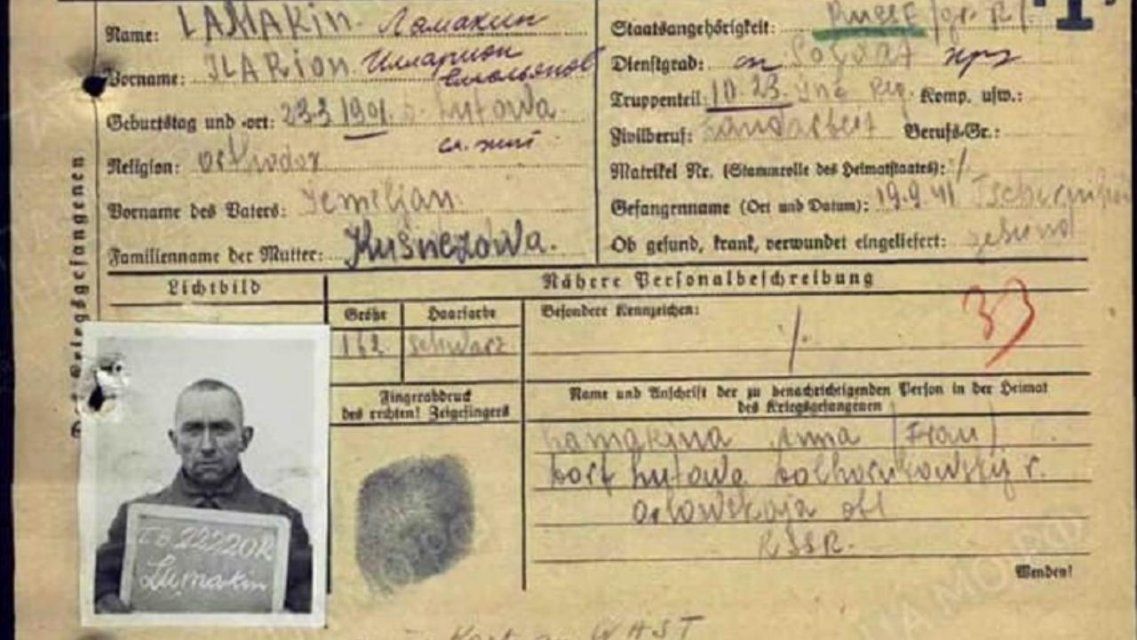 Name: LAMAKin Ламакин
Vorname: ILARion Илларион
Емельянов
Geburtstag und -ort: 23.3 1901
Religion: orthodox
Vorname des Vaters: Jemeljan
Familienname der Mutter: Kusnezowa.
Staatsangehörigkeit: Russe
Dienstgrad: Soldat
Truppenteil: 10.23. Inf. Reg. Komp. usw.:
Zivilberuf: Landarbeit Berufs-Gr.:
Matrikel Nr. (Stammrolle des Heimatstaates): %
Gefangennahme (Ort und Datum): 19.9.41
Ob gesund, krank, verwundet eingeliefert: gesund
Kriegsgefangenen
Lichtbild
Nähere Personalbeschreibung
Größe
Haarfarbe
162
schwarz
Besondere Kennzeichen:
%
33
Fingerabdruck
des rechten! Zeigefingers
Name und Anschrift der zu benachrichtigenden Person in der Heimat
des Kriegsgefangenen
Lamakina Anna (Frau)
Dorf
Orlowskaja obl
RSSR.
Wenden!
22220R
Lamakin